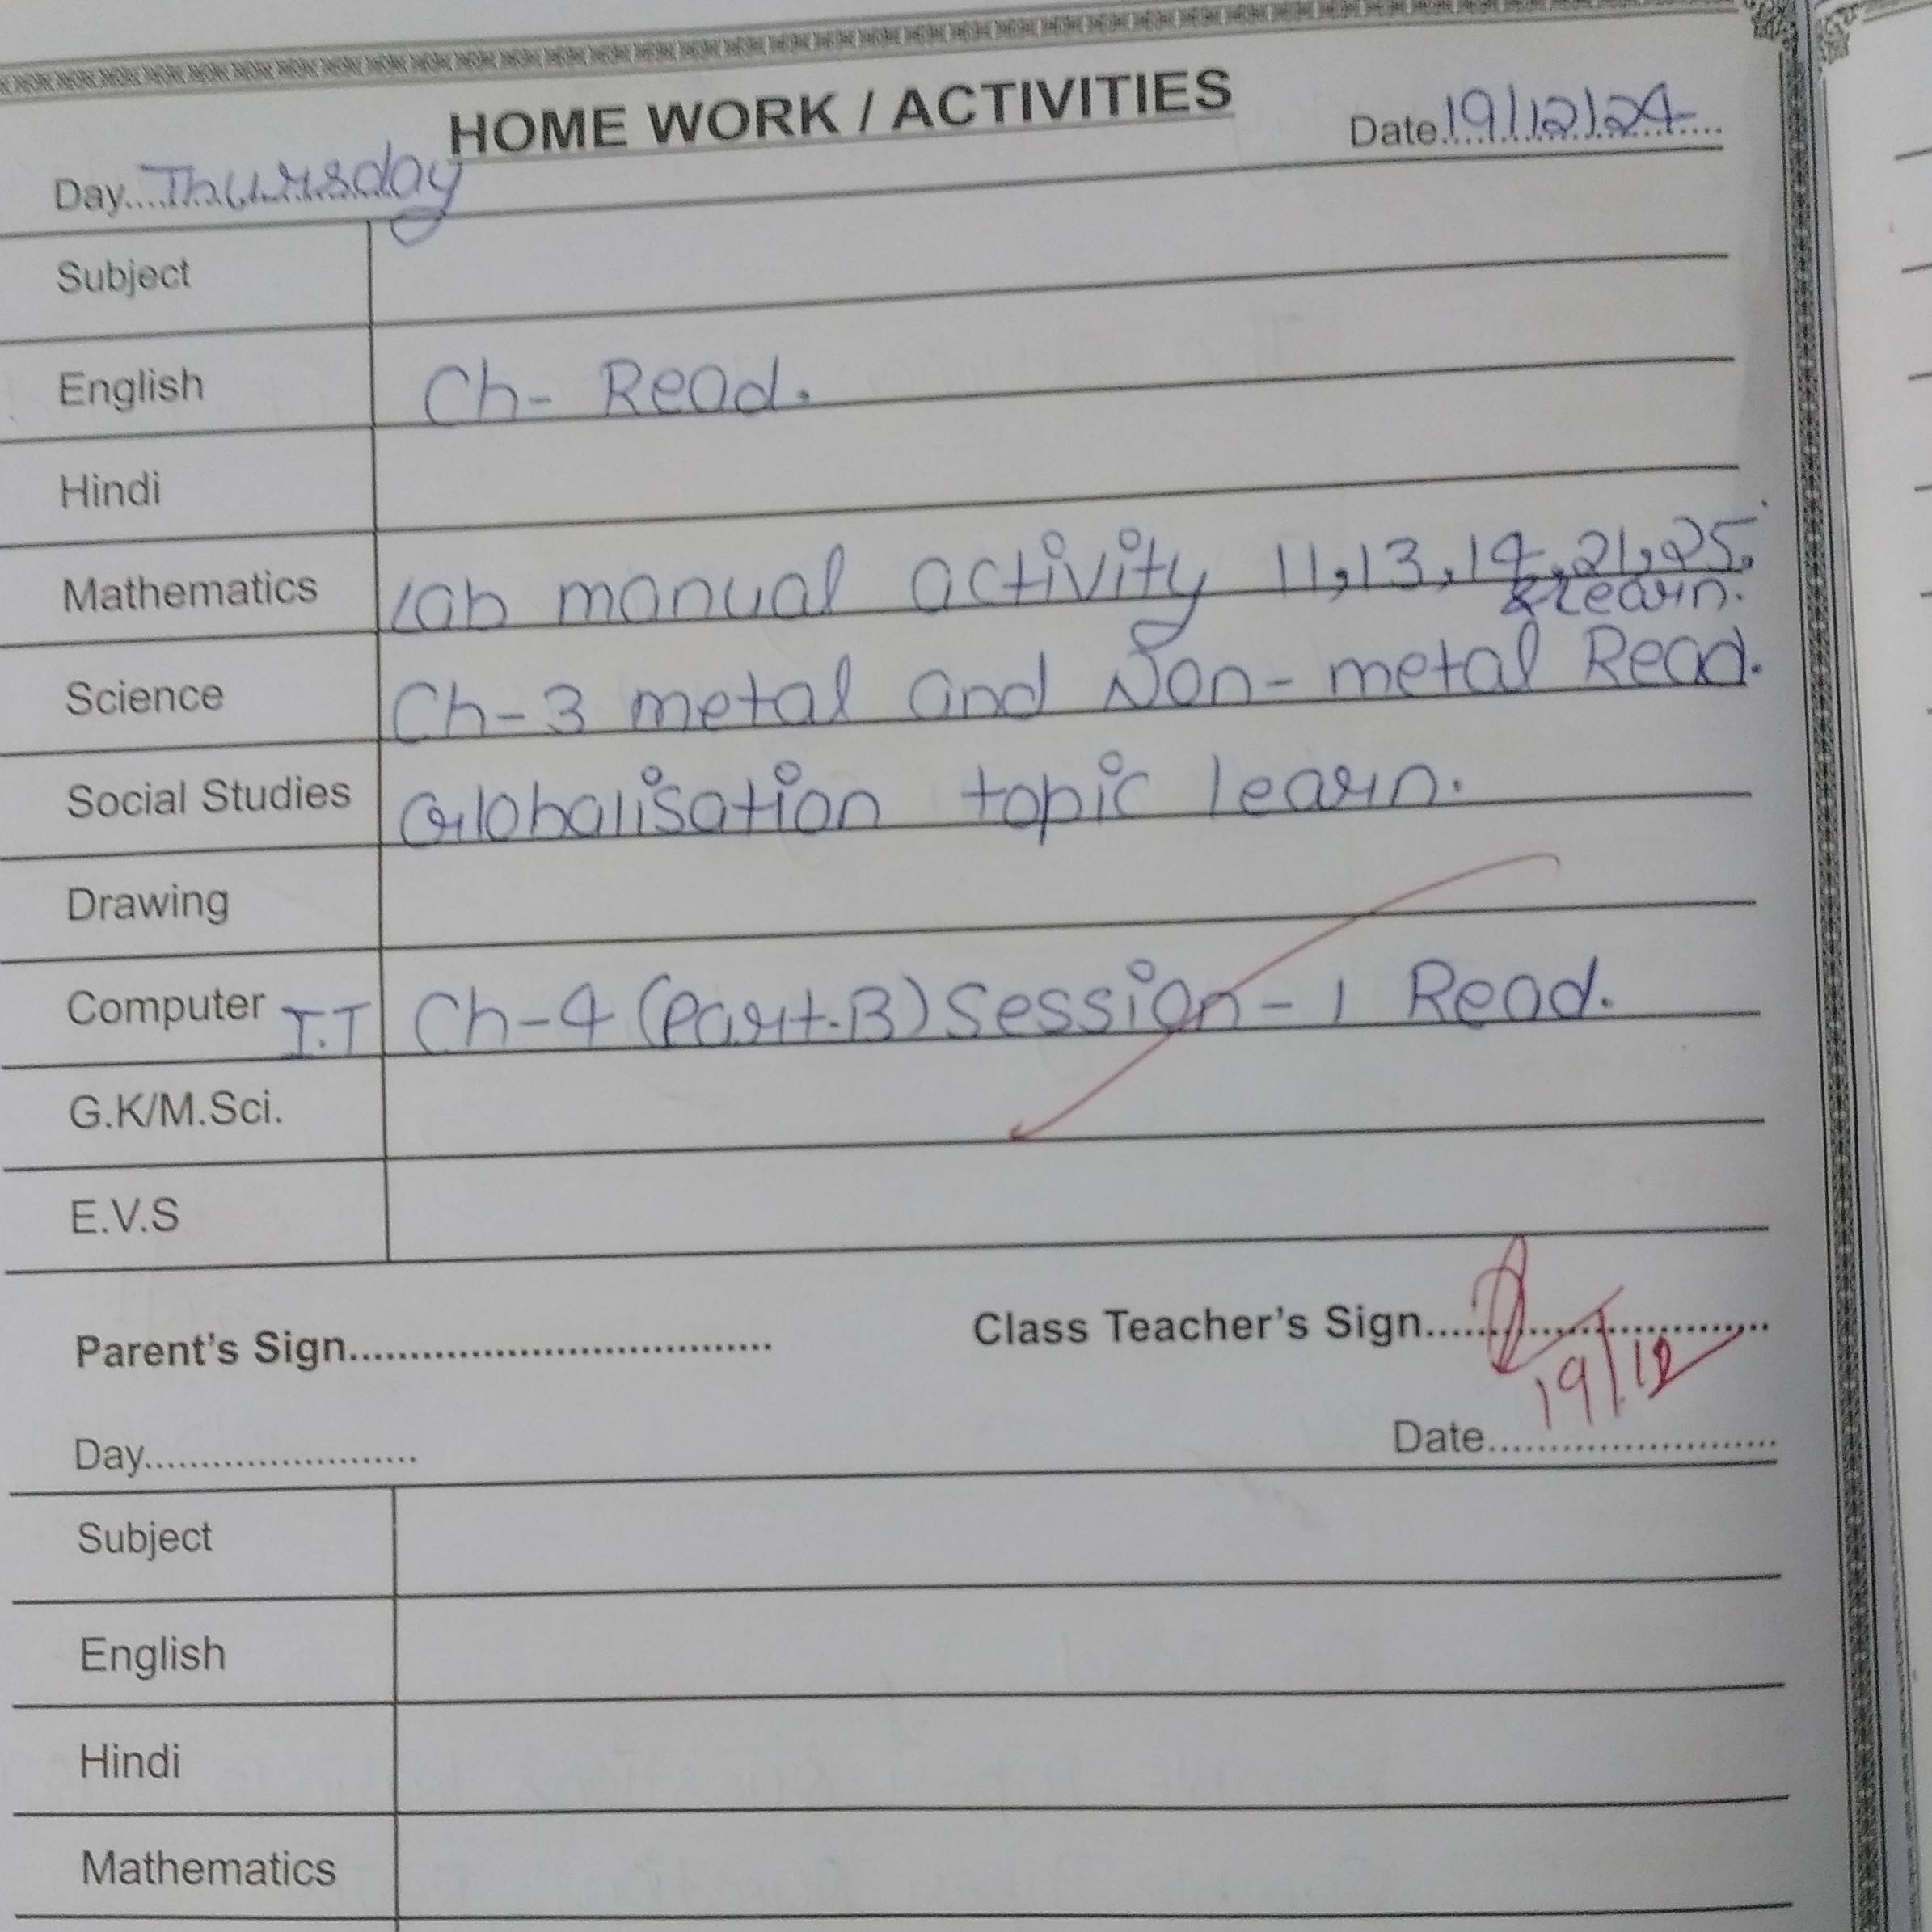 HOME WORK / ACTIVITIES
Day....Thursday Date 19/12/24
Subject
English Ch- Read.
Hindi
Mathematics Lab manual activity 11,13,14,21,25.
& learn.
Science Ch-3 metal and Non-metal Read.
Social Studies Globalisation topic learn.
Drawing
Computer I.T Ch-4 (Part-B) Session-1 Read.
G.K/M.Sci.
E.V.S
Parent's Sign.................................... Class Teacher's Sign..............................
19/12
Day........................ Date.........................
Subject
English
Hindi
Mathematics